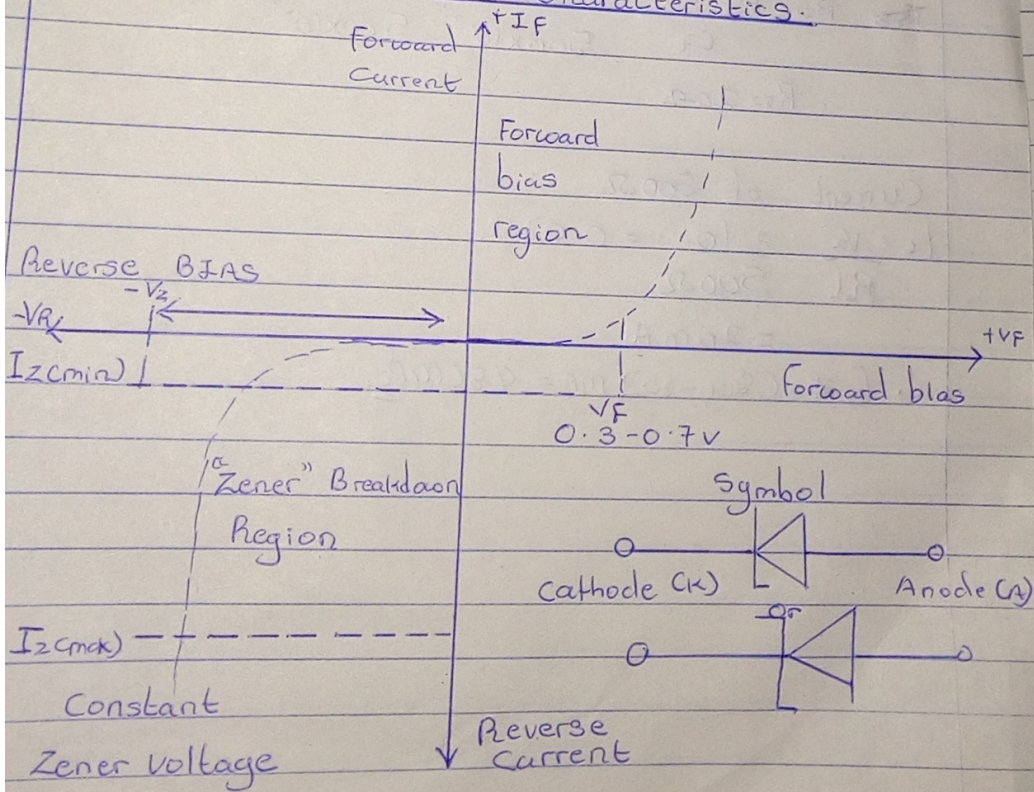 Characteristics.
+IF
Forward
Current
Forward
bias
region
Reverse BIAS
-Vz
-VR
+VF
Iz(min)
Forward bias
VF
0.3-0.7v
"Zener" Breakdaon
Region
Symbol
Cathode (K)
Anode (A)
or
Iz(max)
Constant
Zener voltage
Reverse
Current